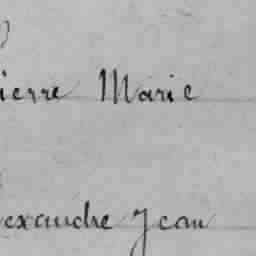 ierre Marie
exandre Jean